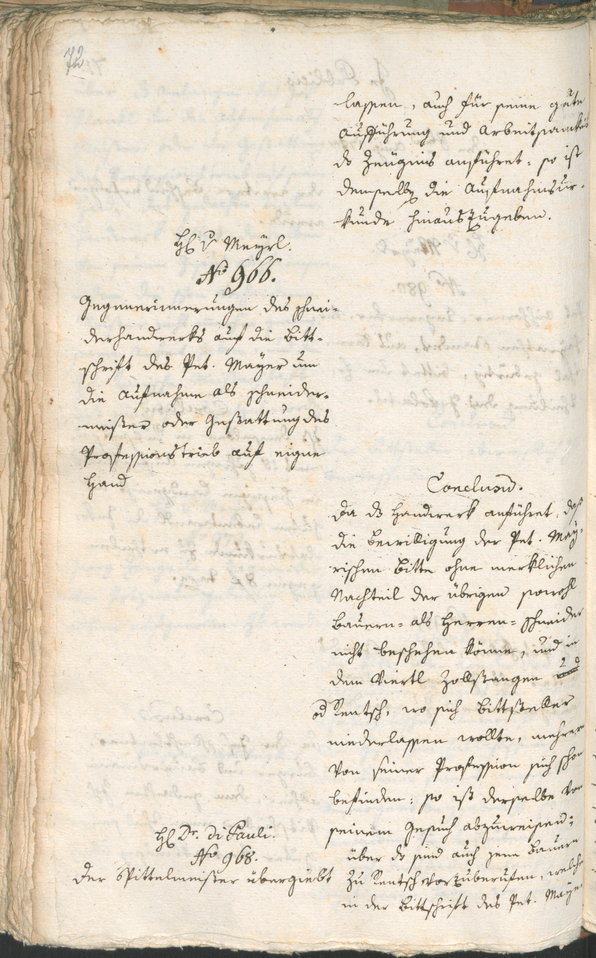 72
lassen, auch für seine gute
Aufführung und Arbeitsamkeit
ds Zeugnis anführet: so ist
demselben die Aufnahmsur-
kunde hinauszugeben.
H. v Meyrl.
No 966.
Gegenerinnerungen des Schnei-
derhandwerks auf die Bitt-
schrift des Pet. Mayer um
die Aufnahme als Schneider-
meister oder Gestattung des
Professionstrieb auf eigne
Hand
Conclusum.
Da ds Handwerk anführet, daß
die Bewilligung der Pet. May-
rischen Bitte ohne merklichen
Nachteil der übrigen sowohl
Bauern- als Herren-Schneider
nicht beschehen könne, und in
dem Viertl Zollstangen
od Rentsch, wo sich Bittsteller
niederlassen wollte, mehrere
von seiner Profession sich schon
befinden: so ist derselbe von
seinem Gesuch abzuweisen;
über ds sind auch jene Bauern
zu Rentsch vorzuberufen, welche
in der Bittschrift des Pet. Mayer
H. Dr. Di Pauli.
No 968.
Der Spittelmeister übergiebt